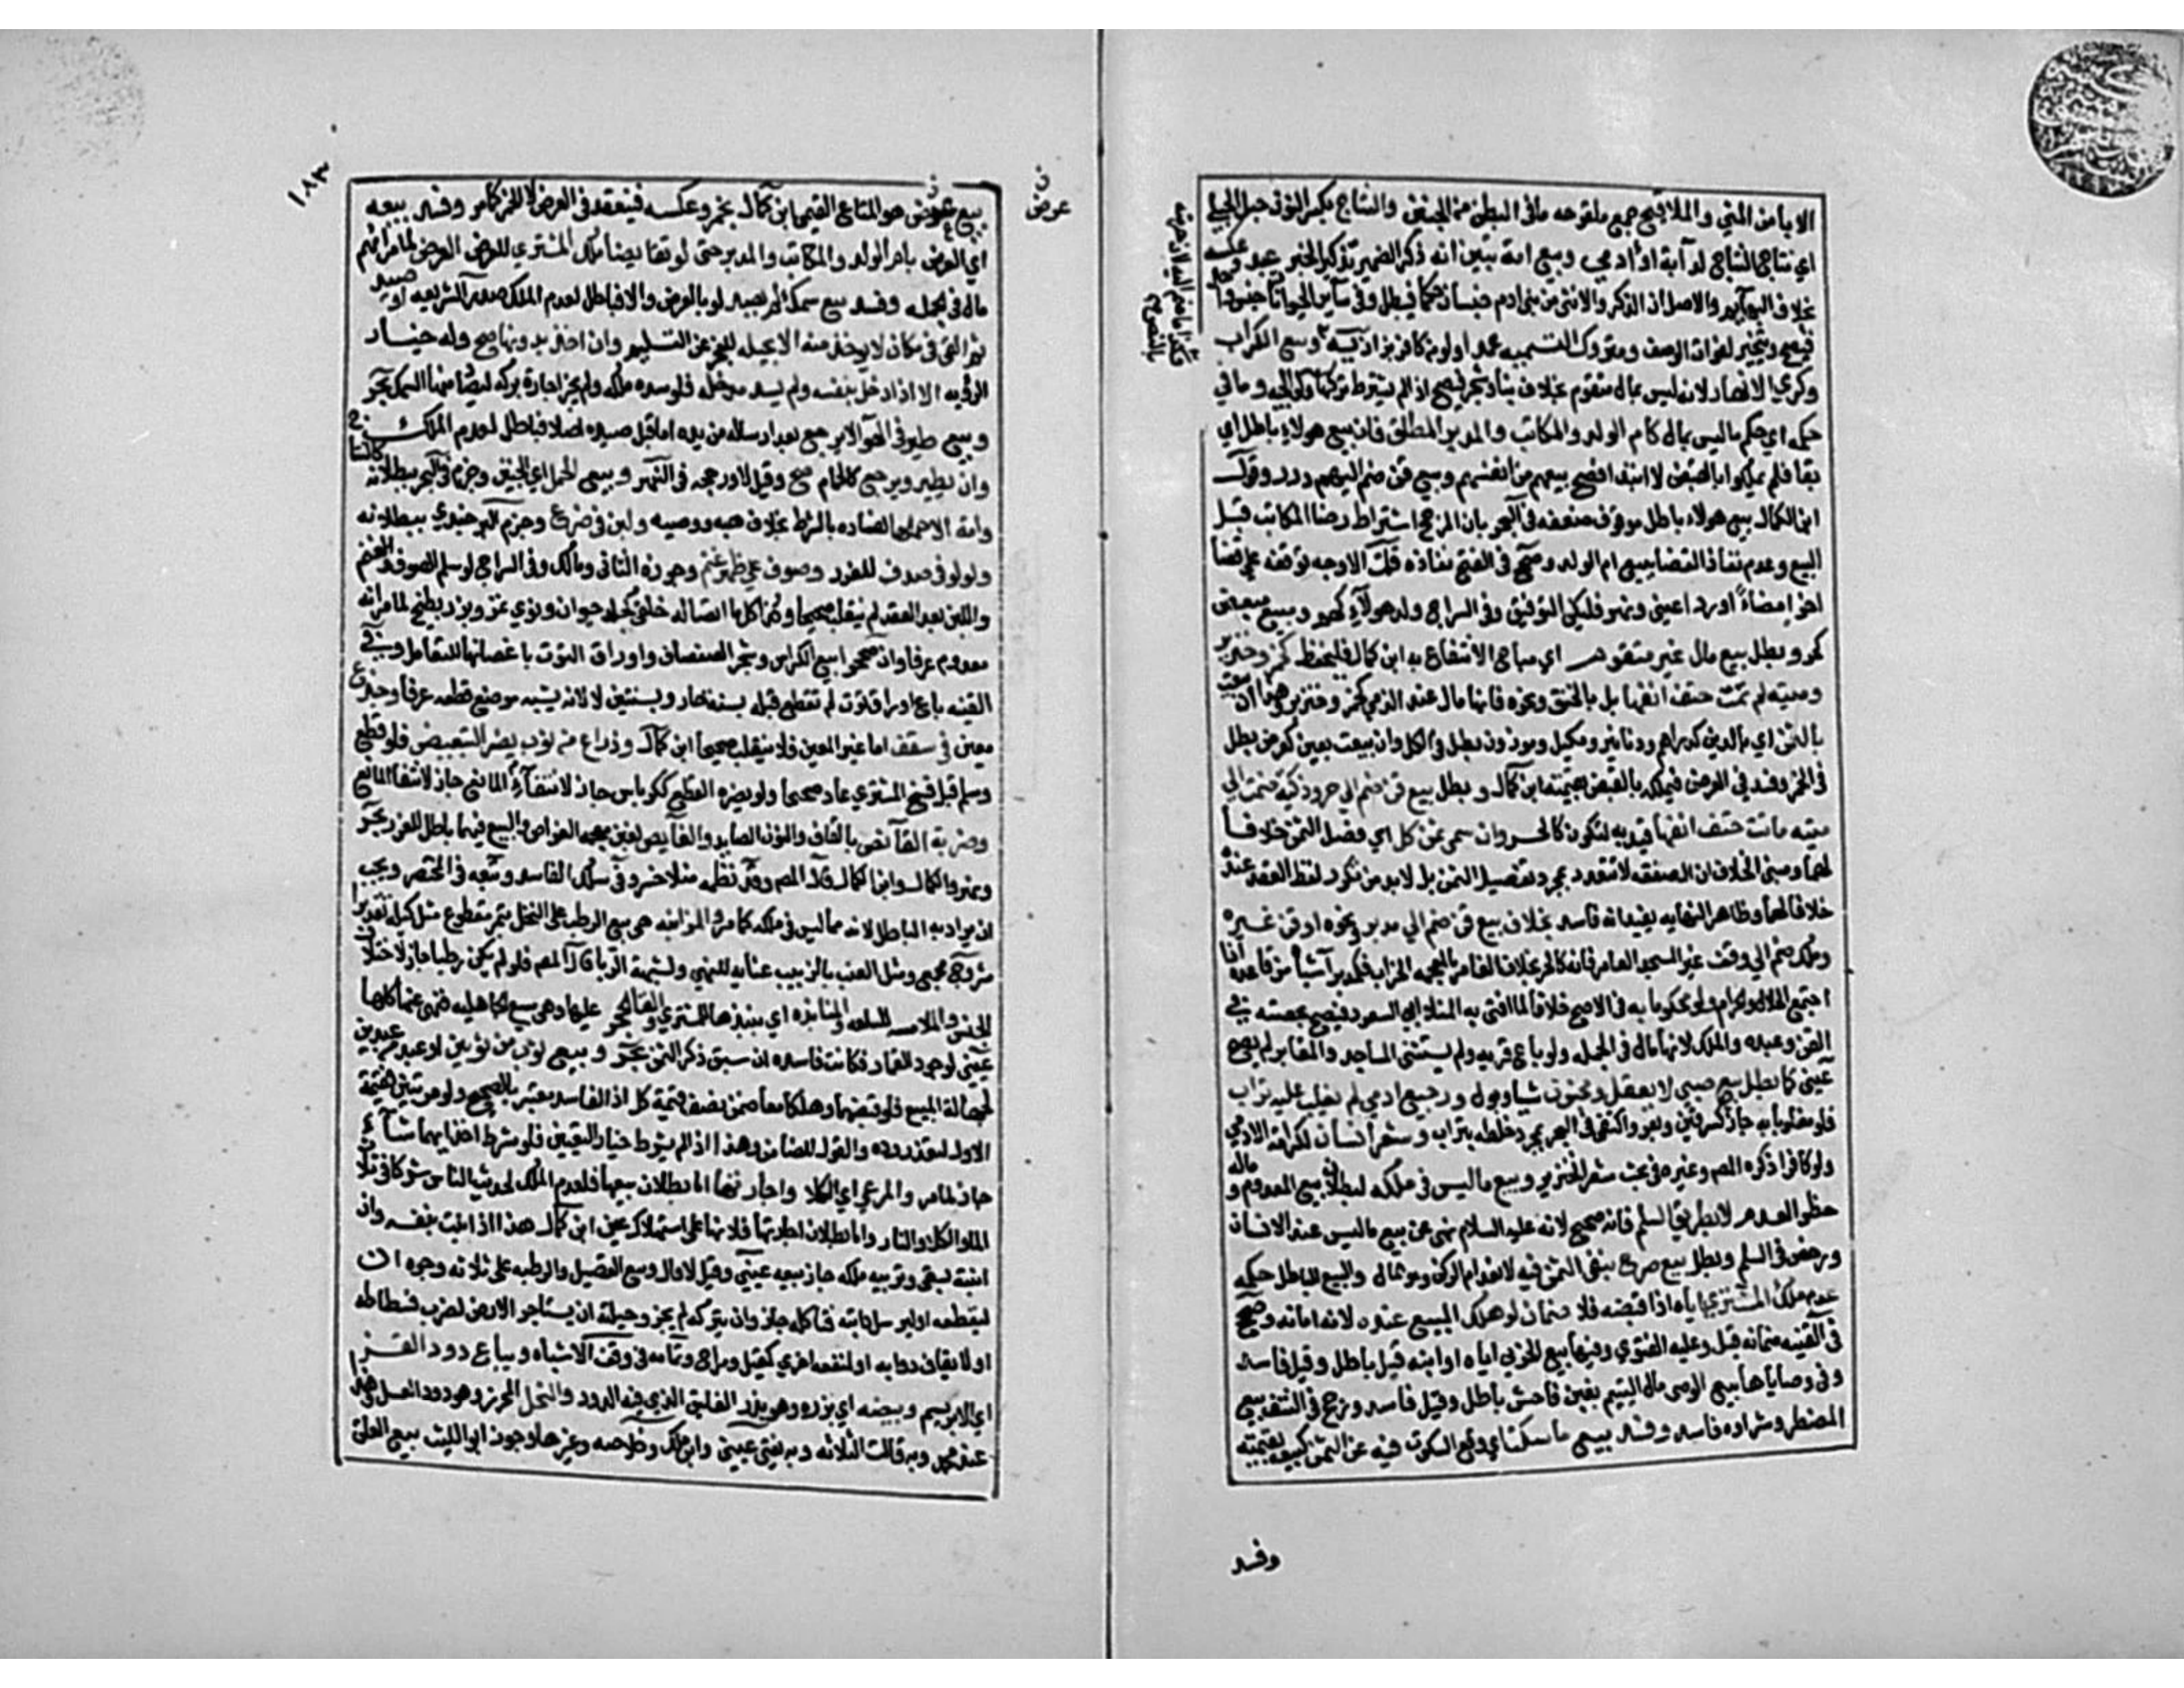 الابا من المني والملاقيح جمع ملقوحه مافي البطن من الجنين والنتاج بكسر النون حبل الحبله
اي نتاج النتاج لدابة او آدمي وبيع امة تبين انه ذكر الضمير لتذكير الخبر عبد وعكسه
بخلاف البهايم والاصل ان الذكر والانثى من بني ادم جنسان حكما فيبطل وفي ساير الحيوانات جنس واحد
فيصح ويتخير لفوات الوصف ومتروك التسميه عمدا ولو من كافر بزازيه وبيع الكراب
وكري الانهار لانه ليس بمال متقوم بخلاف بناء وشجر فيصح اذا لم يشترط تركها ولوالجيه وما في
حكمه اي حكم ماليس بمال كام الولد والمكاتب والمدبر المطلق فان بيع هولاء باطل اي
بقا فلم يملكوا بالقبض لا ابتدا فصح بيعهم من انفسهم وبيع قن ضم اليهم درر وقول
ابن الكمال بيع هولاء باطل موقوف ضعفه في البحر بان المرجح اشتراط رضا المكاتب قبل
البيع وعدم نفاذ القضا ببيع ام الولد وصحح في الفتح نفاذه قلت الاوجه توقفه على قضا
اخر امضاءً اورداً عيني ونهر فليكن التوفيق وفي السراج ولد هولاء كهم وبيع مبعض
كحر وبطل بيع مال غير متقوم اي مباح الانتفاع به ابن كمال فليحفظ كخمر وخنزير
وميته لم تمت حتف انفها بل بالخنق ونحوه فانها مال عند الذمي كخمر وخنزير وهذا ان بيعت
بالثمن اي بالدين كدراهم ودنانير ومكيل وموزون بطل في الكل وان بيعت بعين كعرض بطل
في الخمر وفسد في العرض فيملكه بالقبض بقيمته ابن كمال وبطل بيع قن ضم الي حر وذكية ضمت الي
ميته ماتت حتف انفها قيد به لتكون كالحر وان سمي ثمن كل اي فصل الثمن خلافا
لهما ومبني الخلاف ان الصفقه لا تتعدد بمجرد تفصيل الثمن بل لابد من تكرر لفظ العقد عنده
خلافا لهما وظاهر النهايه يفيد انه فاسد بخلاف بيع قن ضم الي مدبر ونحوه او قن غيره
وملك ضم الي وقف غير المسجد العامر فانه كالحر بخلاف الغامر بالمعجمه الخراب فكمدبر اشباه من قاعده اذا
اجتمع الحلال والحرام ولو محكوما به في الاصح خلافا لما افتي به المنلا ابي السعود فيصح بحصته في
القن وعبده والملك لانها مال في الجمله ولو باع قريه ولم يستثني المساجد والمقابر لم يصح
عيني كما بطل بيع صبي لا يعقل ومجنون شيا وبول ورجيع ادمي لم يغلب عليه تراب
فلو مغلوبا به جاز كسرقين وبعر واكتفي في البحر بمجرد خلطه بتراب وشعر انسان لكرامة الادمي
ولو كافرا ذكره المص وغيره في بحث شعر الخنزير وبيع ماليس في ملكه لبطلان بيع المعدوم وماله
خطر العدم لا بطريق السلم فانه صحيح لانه عليه السلام نهى عن بيع ماليس عند الانسان
ورخص في السلم وبطل بيع صرح بنفي الثمن فيه لانعدام الركن وهو المال والبيع الباطل حكمه
عدم ملك المشتري اياه اذا قبضه فلا ضمان لو هلك المبيع عنده لانه امانه وصحح
في القنيه ضمانه قيل وعليه الفتوي وفيها بيع الحربي اباه او ابنه قيل باطل وقيل فاسد
وفي وصاياها بيع الوصي مال اليتيم بغبن فاحش باطل وقيل فاسد ورجح في النتف بيع
المضطر وشراوه فاسد وفسد بيع ما سكت اي وقع السكوت فيه عن الثمن كبيعه بقيمته
وفسد
ن
عرض
١٨٣
بيع عرض هو المتاع القيمي ابن كمال بخمر وعكسه فينعقد في العرض لا الخمر كما مر وفسد بيعه
اي العرض بام الولد والمكاتب والمدبر حتى لو تقابضا ملك المشتري للعرض العرض لما مر انهم
مال في الجمله وفسد بيع سمك لم يصد لو بالعرض والا فباطل لعدم الملك صدر الشريعه او صيد
ثم القي في مكان لا يوخذ منه الا بحيله للعجز عن التسليم وان اخذ بدونها صح وله خيار
الرؤيه الا اذا دخل بنفسه ولم يسد مدخله فلو سده ملكه ولم يجز اجارة بركه ليصاد منها السمك بحر
وبيع طير في الهوآ لا يرجع بعد ارساله من يده اما قبل صيده اصلا فباطل لعدم الملك
وان يطير ويرجع كالحمام صح وقيل لا ورجحه في النهر وبيع الحمل اي الجنين وجزم في البحر ببطلانه كالنتاج
وامة الا حملها لفساده بالشرط بخلاف هبه ووصيه ولبن في ضرع وجزم البرجندي ببطلانه
ولولو في صدف للغرر وصوف علي ظهر غنم وجوزه الثاني ومالك وفي السراج لو سلم الصوف
واللبن بعد العقد لم ينقلب صحيحا وكذا كل ما اتصاله خلقي كجلد حيوان ونوي تمر وبزر بطيخ لما مر انه
معدوم عرفا وان صححوا بيع الكراث وشجر الصفصاف واوراق التوت باغصانها للتعامل وفي
القنيه باع اوراق توت لم تقطع قبله بسنه جاز وبسنتين لا لانه يشتبه موضع قطعه عرفا وجذع
معين في سقف اما غير المعين فلا ينقلب صحيحا ابن كمال وذراع من ثوب يضره التبعيض فلو قطع
وسلم قبل فسخ المشتري عاد صحيحا ولو لم يضره القطع ككرباس جاز لانتفاء المانع
وضربة القانص بالقاف والنون الصايد والغايص بغين معجمه الغواص والبيع فيها باطل للغرر بحر
ونهر والكمال وابن الكمال قال المص وقد نظمه منلا خسرو في سلك الفاسد وتبعه في المختصر ويجب
ان يراد به الباطل لانه مما ليس في ملكه كما مر والمزابنه هي بيع الرطب على النخل بتمر مقطوع مثل كيله تقديرا
شروح مجمع ومثل العنب بالزبيب عنايه للنهي ولشبهة الربا قال المص فلو لم يكن رطبا جاز لاختلاف
الجنس والملامسه للسلعه والمنابذه اي بنبذها للمشتري والقا الحجر عليها وهي بيع الجاهليه فنهي عنها كلها
عيني لوجود القمار فكانت فاسده ان سبق ذكر الثمن بحر وبيع ثوب من ثوبين او عبد من عبدين
لجهالة المبيع فلو قبضهما وهلكا معا ضمن نصف قيمة كل اذ الفاسد معتبر بالصحيح ولو مرتبين فقيمة
الاول لتعذر رده والقول للضامن وهذا اذا لم يشترط خيار التعيين فلو شرط اخذ ايهما شآء
جاز لما مر والمراعي اي الكلا واجارتها اما بطلان بيعها فلعدم الملك لحديث الناس شركا في ثلاث
الماء والكلا والنار واما بطلان اجارتها فلانها على استهلاك عين ابن كمال هذا اذا نبت بنفسه وان
انبته بسقي وتربيه ملكه جاز بيعه عيني وقيل لا قال وبيع القصيل والرطبه على ثلاثه وجوه ان
ليقطعه او ليرسل دابته فتاكله جاز وان يتركه لم يجز وحيلته ان يستاجر الارض لضرب فسطاطه
او لايقاف دوابه او لمنفعه اخري كمقيل ومراح وتمامه في وقف الاشباه ويباع دود القز
اي الابريسم وبيضه اي بزره وهو بذر الفليق الذي فيه الدود والنحل المحرز وهو دود العسل وهذا
عند محمد وبه قالت الثلاثه وبه يفتي عيني وابن ملك وخلاصه وغيرها وجوز ابو الليث بيع العلق